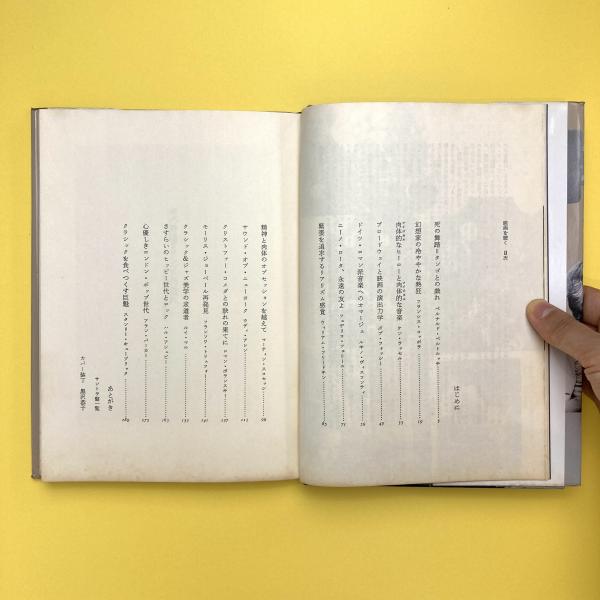 映画を聴く 目次
はじめに
死の舞踏=タンゴとの戯れ ベルナルド・ベルトルッチ 5
幻想家の冷ややかな熱狂 フランシス・コッポラ 19
肉体的なヒーローと肉体的な音楽 ケン・ラッセル 33
ブロードウェイと映画の演出力学 ボブ・フォッシー 42
ドイツ・ロマン派音楽へのオマージュ ルキノ・ヴィスコンティ
ニーノ・ロータ、永遠の友よ フェデリコ・フェリーニ 71
緊張を追求するリアリズム感覚 ウィリアム・フリードキン 85
精神と肉体のオブセッションを越えて マーティン・スコセッシ
サウンド・オブ・ニューヨーク ウディ・アレン 111
クリストファー・コメダとの訣れの果てに ロマン・ポランスキー 127
モーリス・ジョーベール再発見 フランソワ・トリュフォー 141
クラシック&ジャズ美学の求道者 ルイ・マル
さすらいのヒッピー世代とロック ハル・アシュビー
心優しきロンドン・ポップ世代 アラン・パーカー 175
クラシックを食べつくす巨鯨 スタンリー・キューブリック 189
あとがき
サントラ盤一覧
カバー装丁 黒沢恭子